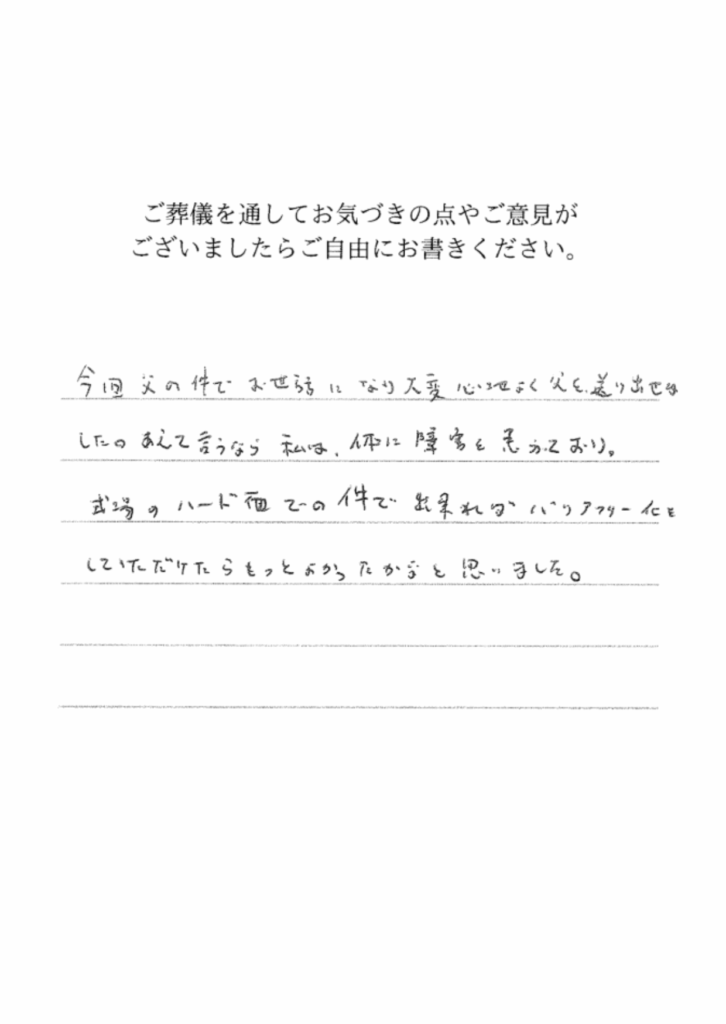 ご葬儀を通してお気づきの点やご意見が
ございましたらご自由にお書きください。
今回 父の件で お世話に なり 大変 心地よく 父を 送り出せま
したの あえて 言うなら 私は、体に 障害を 患かっており。
式場の ハード面での 件で 出来れば バリアフリー化を
していただけたらもっとよかったかなと 思いました。